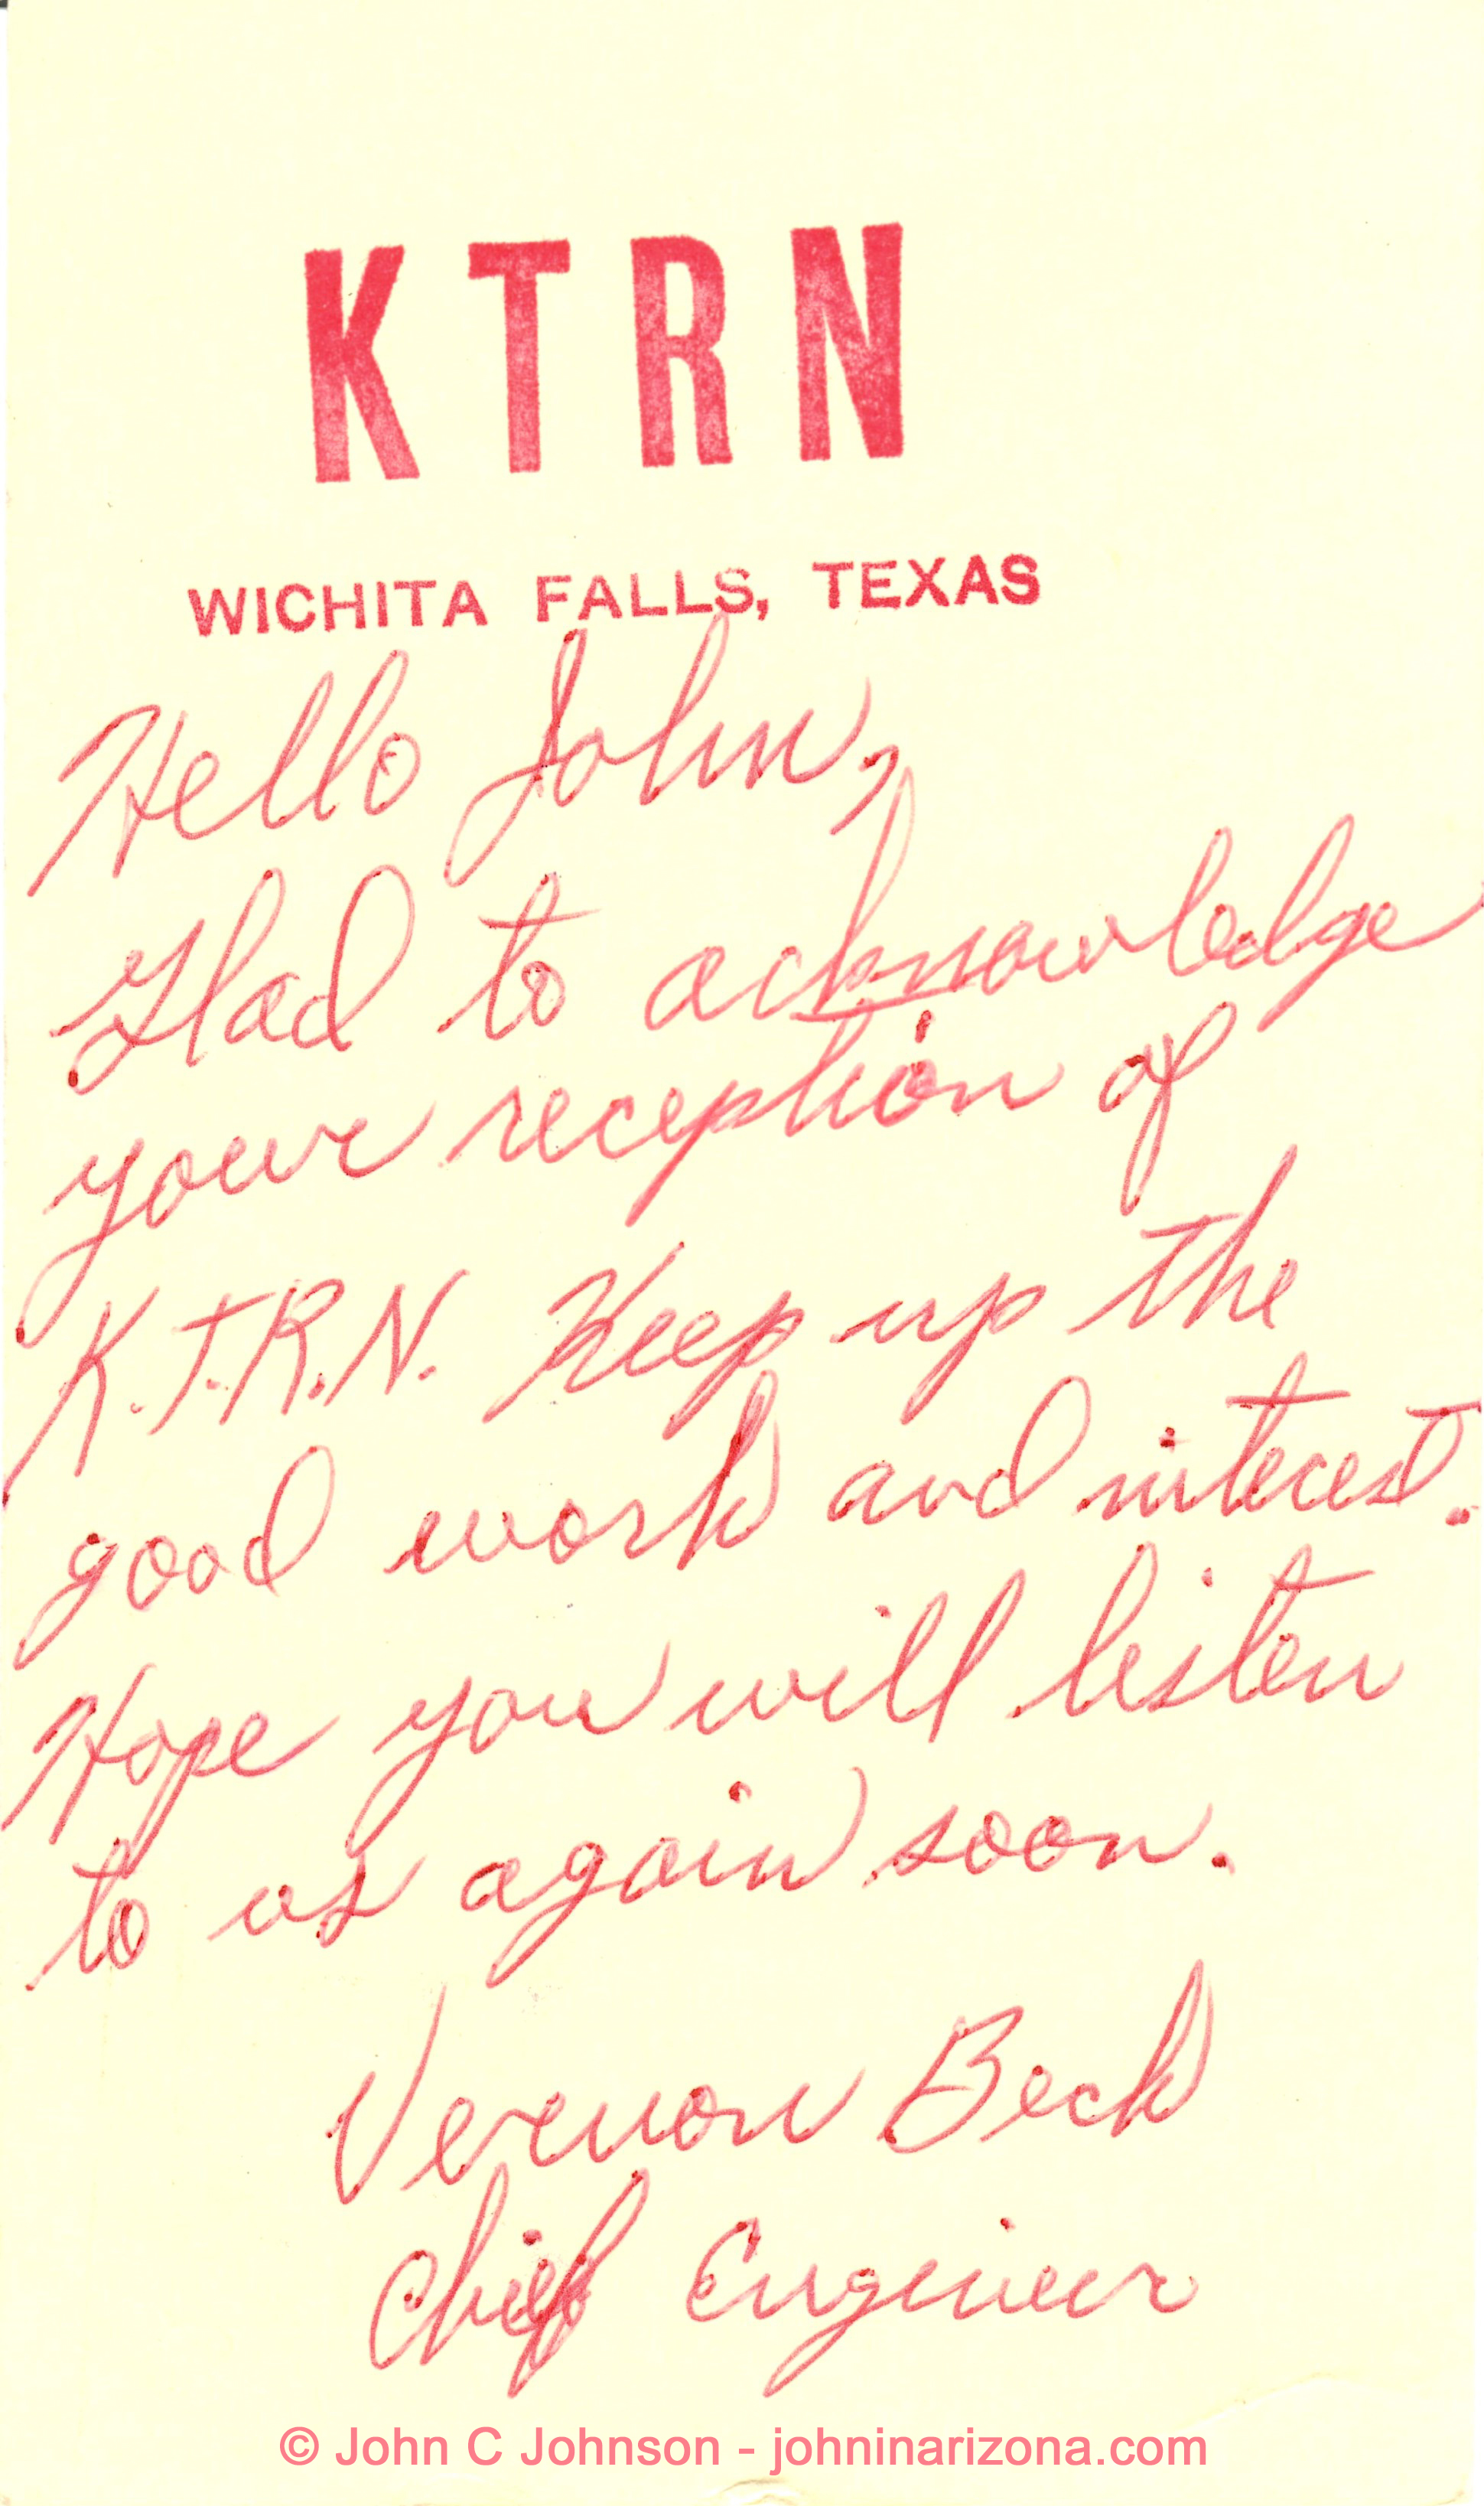 KTRN
WICHITA FALLS, TEXAS
Hello John,
Glad to acknowledge
your reception of
K.T.R.N. Keep up the
good work and interest.
Hope you will listen
to us again soon.
Vernon Beck
Chief Engineer
© John C Johnson - johninarizona.com